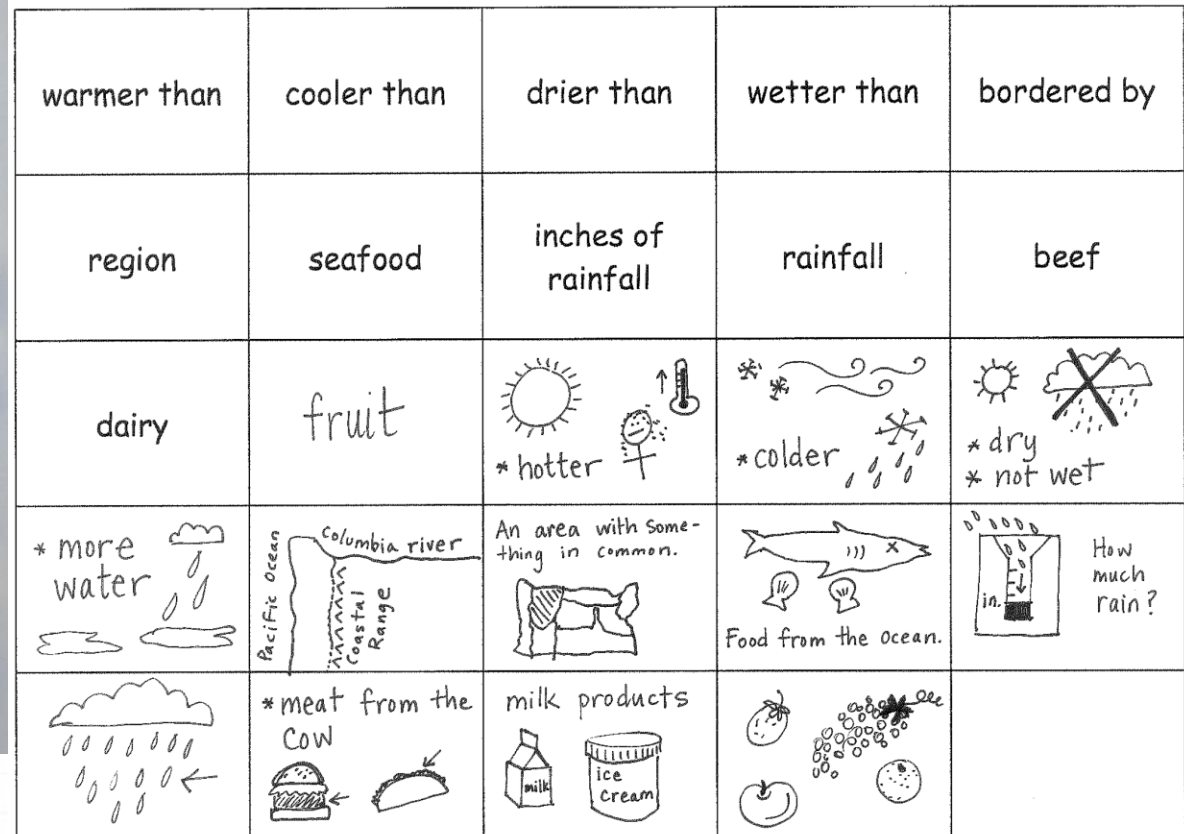 warmer than
cooler than
drier than
wetter than
bordered by
region
seafood
inches of
rainfall
rainfall
beef
dairy
fruit
* hotter
* colder
* dry
* not wet
* more
water
Pacific Ocean
Columbia river
Coastal
Range
An area with some-
thing in common.
Food from the ocean.
in.
How
much
rain?
* meat from the
cow
milk products
milk
ice
cream